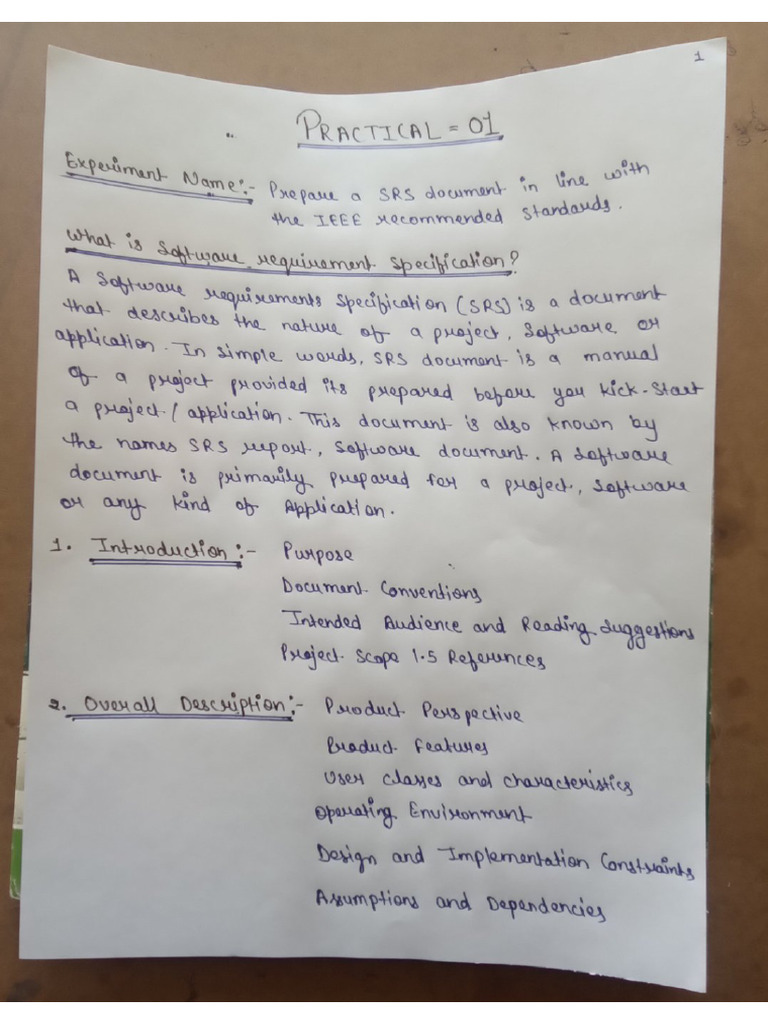 1
PRACTICAL = 01
Experiment Name:- Prepare a SRS document in line with
the IEEE recommended standards.
What is Software requirement specification?
A Software requirements Specification (SRS) is a document
that describes the nature of a project, Software or
application. In simple words, SRS document is a manual
of a project provided its prepared before you kick-start
a project / application. This document is also known by
the names SRS report, Software document. A Software
document is primarily prepared for a project, software
or any kind of Application.
1. Introduction :- Purpose
Document Conventions
Intended Audience and Reading Suggestions
Project Scope 1.5 References
2. Overall Description :- Product Perspective
Product Features
User Classes and characteristics
Operating Environment
Design and Implementation Constraints
Assumptions and Dependencies